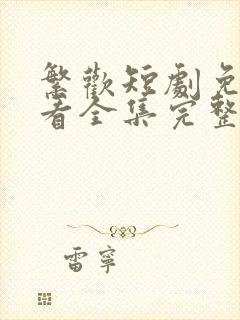 繁歡短劇免
看全集完整
雷寧